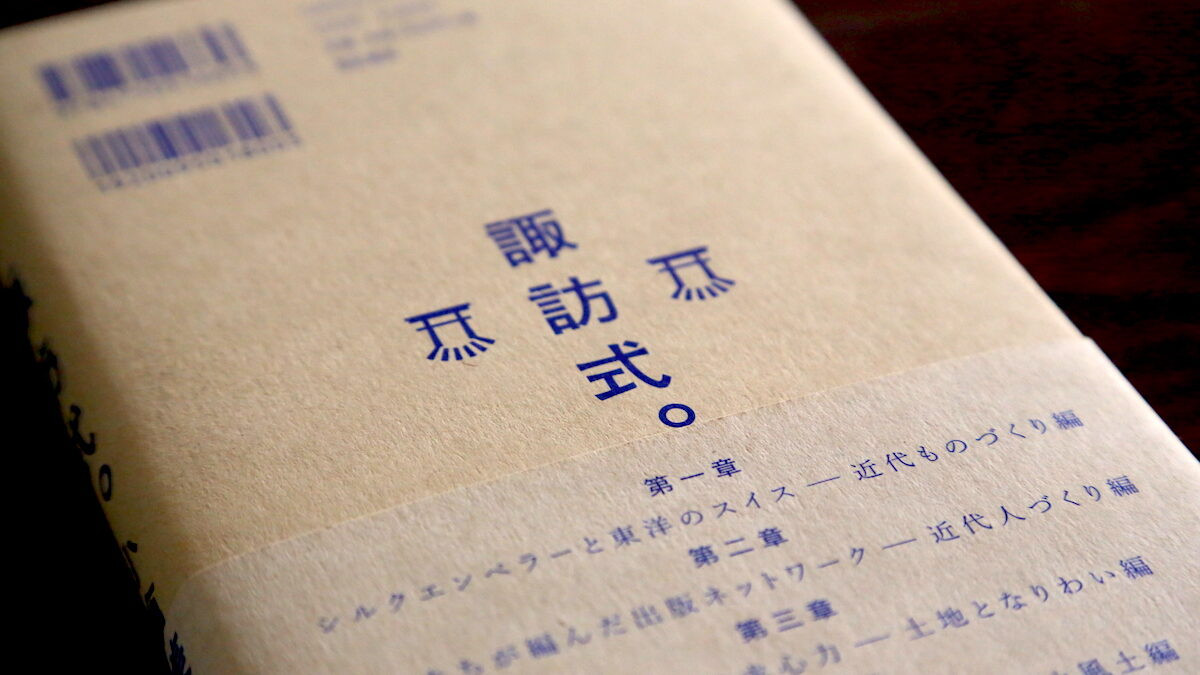 諏訪式。
第一章
シルクエンペラーと東洋のスイス — 近代ものづくり編
第二章
ちが編んだ出版ネットワーク — 近代人づくり編
第三章
心力 — 土地となりわい編
風土編